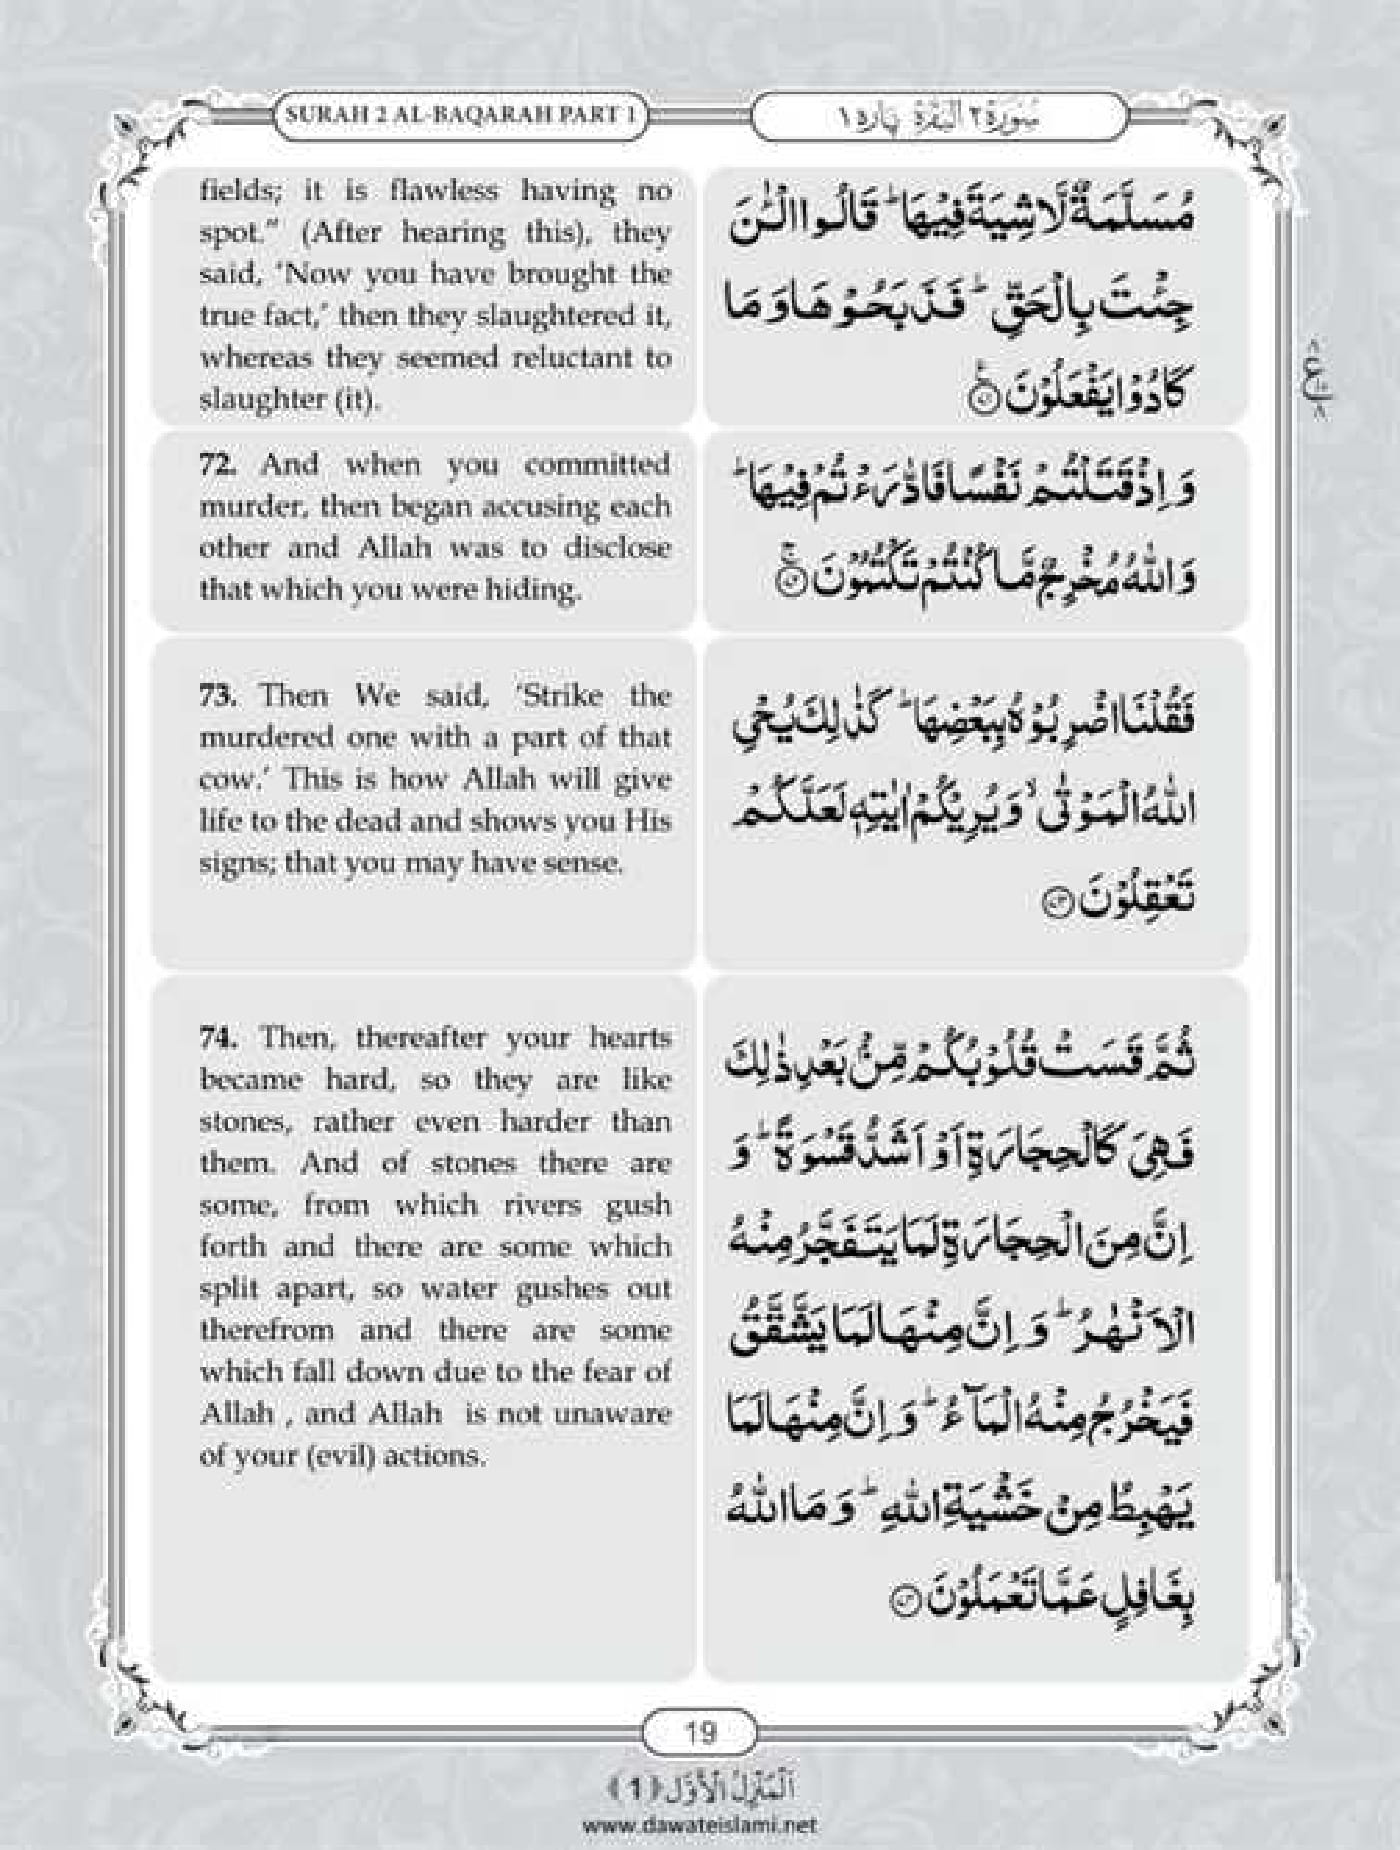 SURAH 2 AL-BAQARAH PART 1
سُوْرَةُ ٢ الْبَقَرَة پاره ١
fields; it is flawless having no
spot.” (After hearing this), they
said, ‘Now you have brought the
true fact,’ then they slaughtered it,
whereas they seemed reluctant to
slaughter (it).
مُسَلَّمَةٌ لَّا شِيَةَ فِيْهَا ؕ قَالُوا الْـٰٔنَ
جِئْتَ بِالْحَقِّ ؕ فَذَبَحُوْهَا وَمَا
كَادُوْا يَفْعَلُوْنَ ﴿۷۱﴾
72. And when you committed
murder, then began accusing each
other and Allah was to disclose
that which you were hiding.
وَ اِذْ قَتَلْتُمْ نَفْسًا فَادّٰرَءْتُمْ فِيْهَا ؕ
وَ اللّٰهُ مُخْرِجٌ مَّا كُنْتُمْ تَكْتُمُوْنَ ﴿۷۲﴾
73. Then We said, ‘Strike the
murdered one with a part of that
cow.’ This is how Allah will give
life to the dead and shows you His
signs; that you may have sense.
فَقُلْنَا اضْرِبُوْهُ بِبَعْضِهَا ؕ كَذٰلِكَ يُحْيِ
اللّٰهُ الْمَوْتٰى ۙ وَ يُرِيْكُمْ اٰيٰتِهٖ لَعَلَّكُمْ
تَعْقِلُوْنَ ﴿۷۳﴾
74. Then, thereafter your hearts
became hard, so they are like
stones, rather even harder than
them. And of stones there are
some, from which rivers gush
forth and there are some which
split apart, so water gushes out
therefrom and there are some
which fall down due to the fear of
Allah , and Allah is not unaware
of your (evil) actions.
ثُمَّ قَسَتْ قُلُوْبُكُمْ مِّنْۢ بَعْدِ ذٰلِكَ
فَهِىَ كَالْحِجَارَةِ اَوْ اَشَدُّ قَسْوَةً ؕ وَ
اِنَّ مِنَ الْحِجَارَةِ لَمَا يَتَفَجَّرُ مِنْهُ
الْاَنْهٰرُ ؕ وَ اِنَّ مِنْهَا لَمَا يَشَّقَّقُ
فَيَخْرُجُ مِنْهُ الْمَآءُ ؕ وَ اِنَّ مِنْهَا لَمَا
يَهْبِطُ مِنْ خَشْيَةِ اللّٰهِ ؕ وَ مَا اللّٰهُ
بِغَافِلٍ عَمَّا تَعْمَلُوْنَ ﴿۷۴﴾
19
اَلْمَنْزِلُ الْاَوَّل ﴿1﴾
www.dawateislami.net